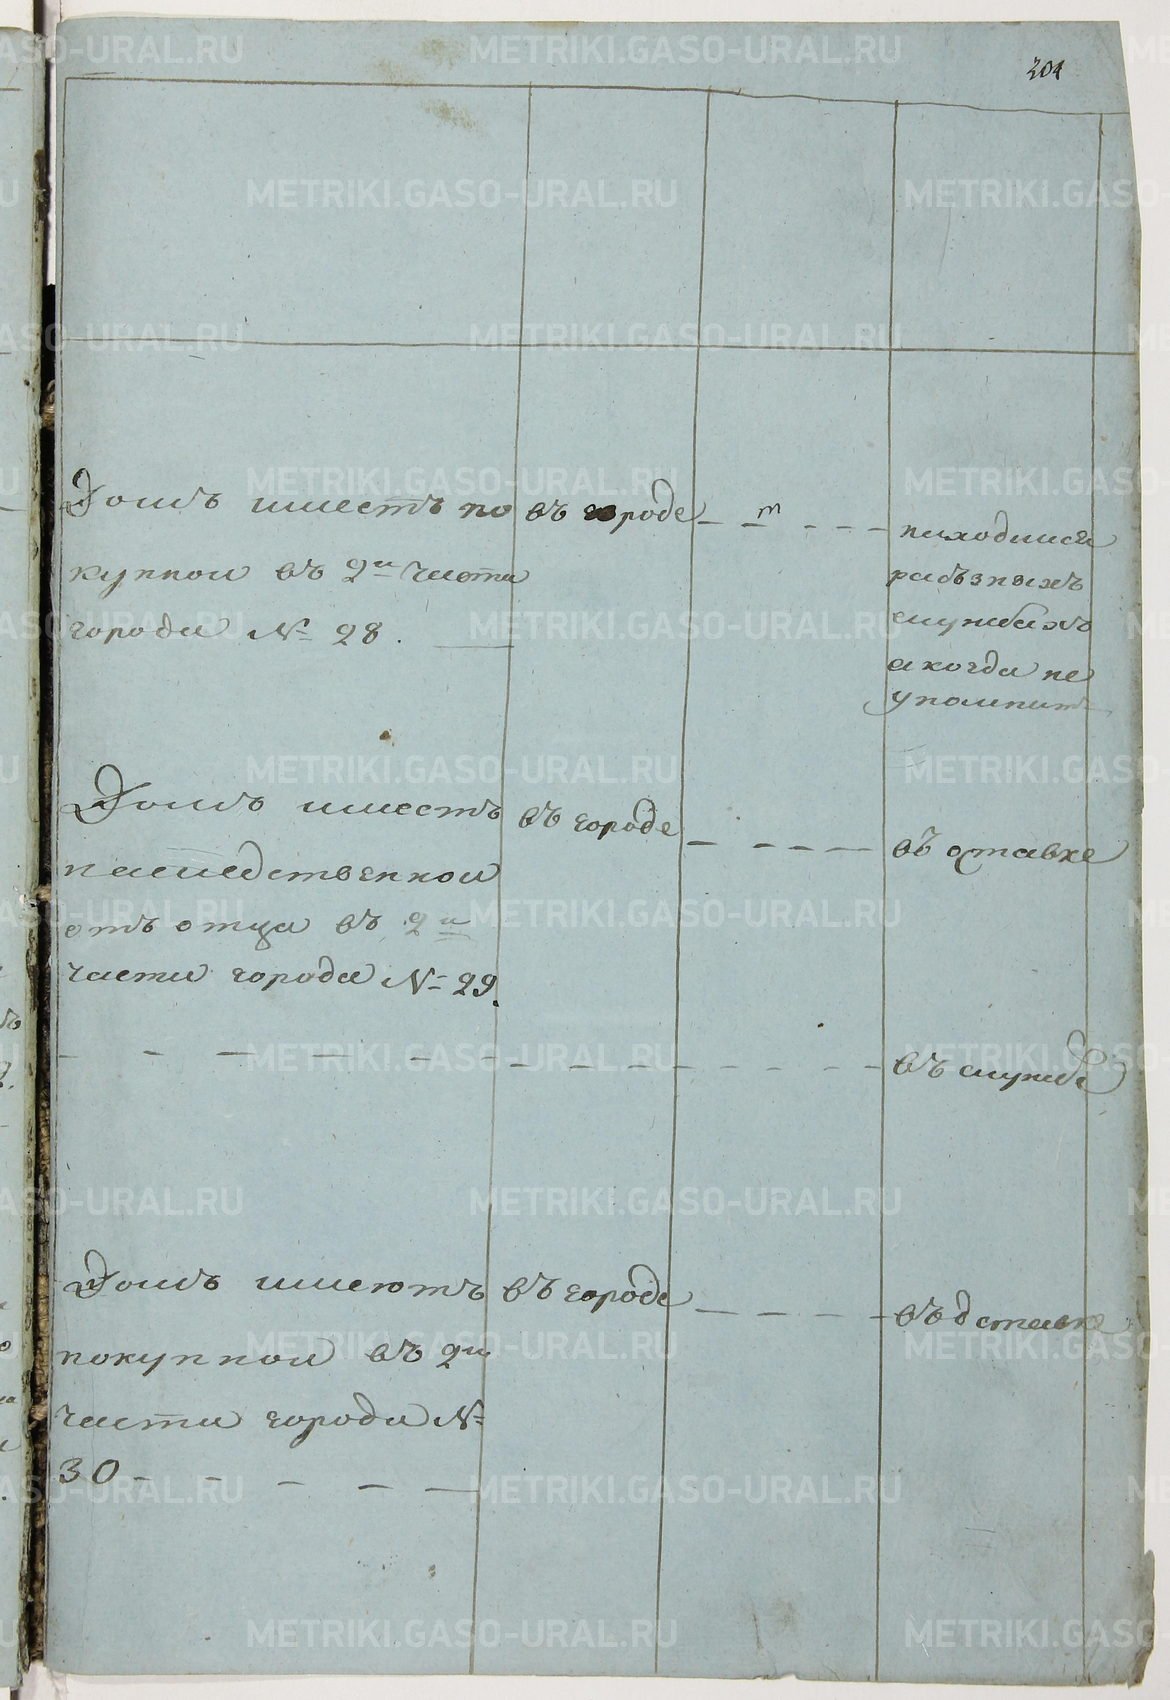 204
Домъ имеетъ по
купной въ 2й части
города № 28.
въ городе
находился
разъзныхъ
службахъ
а когда не
упомнитъ
Домъ имеетъ
наследственной
отъ отца въ 2й
части города № 29.
въ городе
въ отставке
въ службе
Домъ имеютъ
покупной въ 2й
части города №
30
въ городе
METRIKI.GASO-URAL.RU